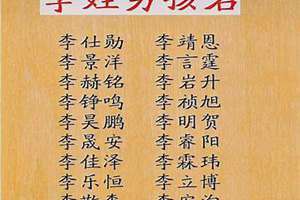 李姓男孩名
李仕勋 李靖恩
李景洋 李言霆
李赫铭 李岩升
李铮鸣 李祯旭
李昊鹏 李明贺
李晟安 李睿阳
李佳泽 李霖玮
李乐恒 李立博